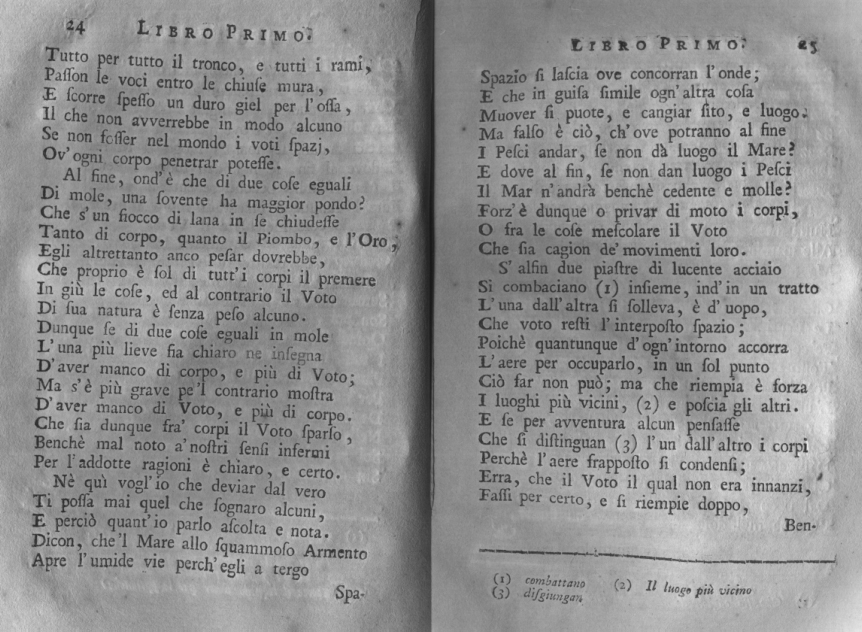 24 LIBRO PRIMO.
Tutto per tutto il tronco, e tutti i rami,
Paſſon le voci entro le chiuſe mura,
E ſcorre ſpeſſo un duro giel per l'oſſa,
Il che non avverrebbe in modo alcuno
Se non foſſer nel mondo i voti ſpazj,
Ov'ogni corpo penetrar poteſſe.
Al fine, ond'è che di due coſe eguali
Di mole, una ſovente ha maggior pondo?
Che s'un fiocco di lana in ſe chiudeſſe
Tanto di corpo, quanto il Piombo, e l'Oro,
Egli altrettanto anco peſar dovrebbe,
Che proprio è ſol di tutt'i corpi il premere
In giù le coſe, ed al contrario il Voto
Di ſua natura è ſenza peſo alcuno.
Dunque ſe di due coſe eguali in mole
L'una più lieve ſia chiaro ne inſegna
D'aver manco di corpo, e più di Voto;
Ma s'è più grave pe'l contrario moſtra
D'aver manco di Voto, e più di corpo.
Che ſia dunque fra' corpi il Voto ſparſo,
Benchè mal noto a'noſtri ſenſi infermi
Per l'addotte ragioni è chiaro, e certo.
Nè quì vogl'io che deviar dal vero
Ti poſſa mai quel che ſognaro alcuni,
E perciò quant'io parlo aſcolta e nota.
Dicon, che'l Mare allo ſquammoſo Armento
Apre l'umide vie perch'egli a tergo
Spa-
LIBRO PRIMO. 25
Spazio ſi laſcia ove concorran l'onde;
E che in guiſa ſimile ogn'altra coſa
Muover ſi puote, e cangiar ſito, e luogo.
Ma falſo è ciò, ch'ove potranno al fine
I Peſci andar, ſe non dà luogo il Mare?
E dove al fin, ſe non dan luogo i Peſci
Il Mar n'andrà benchè cedente e molle?
Forz'è dunque o privar di moto i corpi,
O fra le coſe meſcolare il Voto
Che ſia cagion de'movimenti loro.
S'alfin due piaſtre di lucente acciaio
Si combaciano (1) inſieme, ind'in un tratto
L'una dall'altra ſi ſolleva, è d'uopo,
Che voto reſti l'interpoſto ſpazio;
Poichè quantunque d'ogn'intorno accorra
L'aere per occuparlo, in un ſol punto
Ciò far non può; ma che riempia è forza
I luoghi più vicini, (2) e poſcia gli altri.
E ſe per avventura alcun penſaſſe
Che ſi diſtinguan (3) l'un dall'altro i corpi
Perchè l'aere frappoſto ſi condenſi;
Erra, che il Voto il qual non era innanzi,
Faſſi per certo, e ſi riempie doppo,
Ben-
(1) combattano (2) Il luogo più vicino
(3) diſgiungan